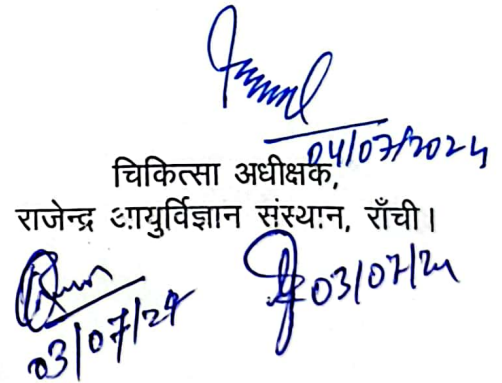 04/07/2024
चिकित्सा अधीक्षक,
राजेन्द्र आयुर्विज्ञान संस्थान, राँची।
03/07/24
03/07/24